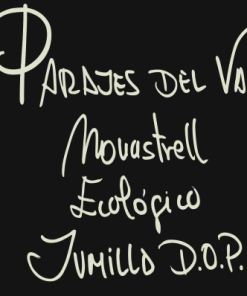 PARAJES DEL VA
Monastrell
Ecológico
JUMILLA D.O.P.